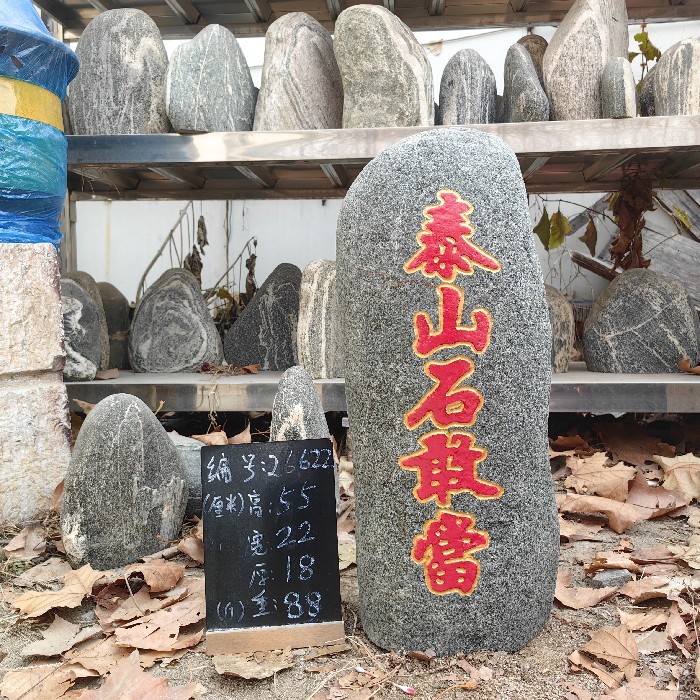 泰山石敢當
编号:26622
(厘米)高:55
宽22
厚:18
(斤)重:88